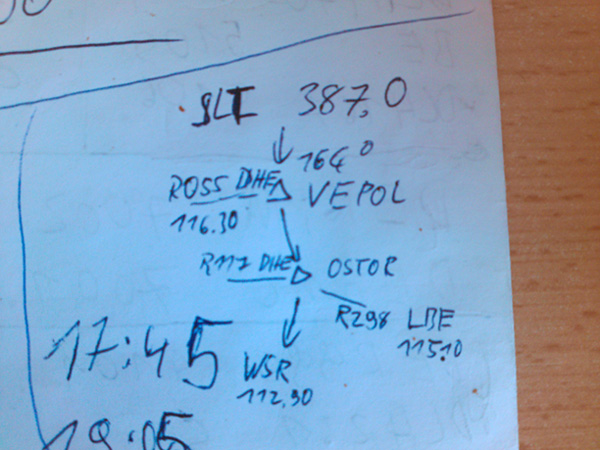 SLT 387.0
164°
R055 DHE VEPOL
116.30
R117 DHE OSTOR
R298 LBE
115.10
17:45
WSR
112.90
19:05